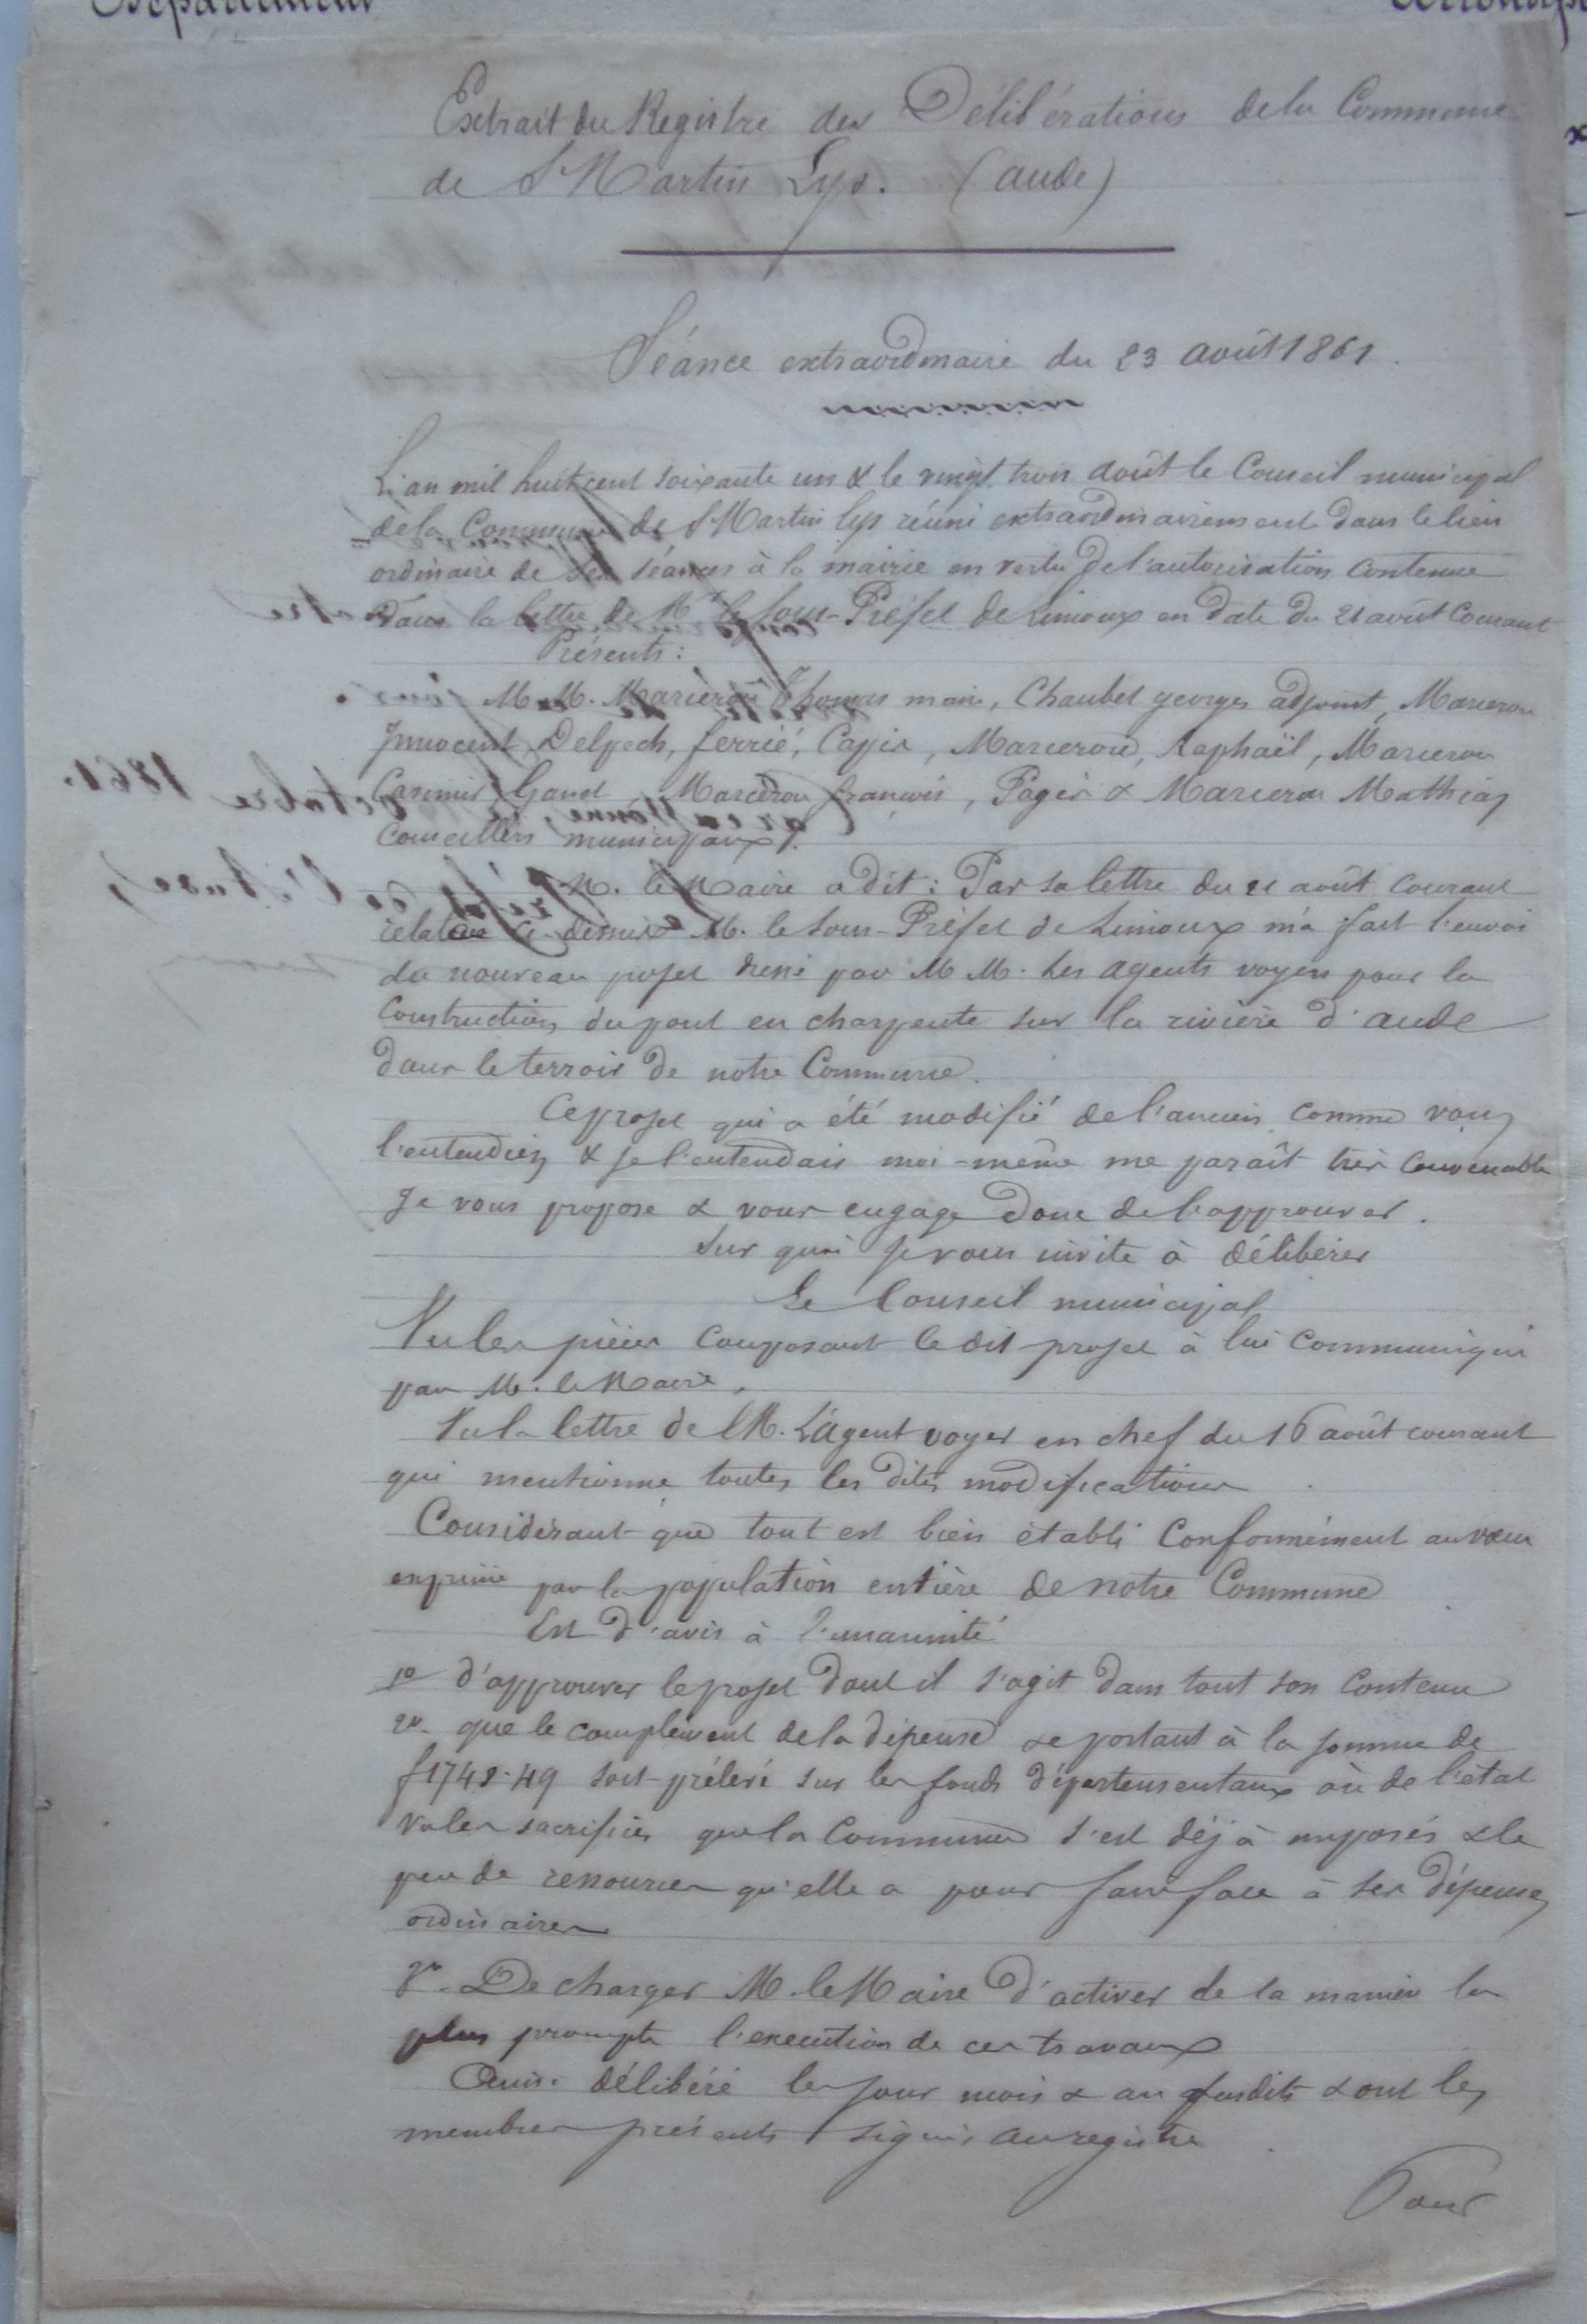 Département
Extrait du Registre des Délibérations de la Commune
de St Martin Lys. (aude)
Séance extraordinaire du 23 août 1861.
L'an mil huit cent soixante un & le vingt trois août le Conseil municipal
de la Commune de St Martin lys réuni extraordinairement dans le lieu
ordinaire de ses séances à la mairie en vertu de l'autorisation contenue
dans la lettre de Mr le Sous-Préfet de Limoux en date du 21 août courant
Présents:
M. M. Marcerou Thomas maire, Chaubet georges adjoint, Marcerou
Innocent, Delpech, ferrié, Capia, Marcerou, Raphaël, Marcerou
Casimir, Gauet, Marcerou françois, Pagès & Marcerou Mathias
Conseillers municipaux.
M. le Maire a dit: Par sa lettre du 21 août courant
relatée ci-dessus M. le Sous-Préfet de Limoux m'a fait l'envoi
du nouveau projet dressé par M M. les agents voyers pour la
Construction du pont en charpente sur la rivière d'aude
dans le terroir de notre Commune.
Ce projet qui a été modifié de l'ancien comme vous
l'entendiez & je l'entendais moi-même me paraît très convenable
Je vous propose & vous engage donc de l'approuver.
Sur quoi je vous invite à délibérer
Le Conseil municipal
Vu les pièces composant le dit projet à lui communiqué
par M. le Maire,
Vu la lettre de M. L'agent voyer en chef du 16 août courant
qui mentionne toutes les dites modifications
Considérant que tout est bien établi Conformément au vœu
exprimé par la population entière de notre Commune
Est d'avis à l'unanimité
1o d'approuver le projet dont il s'agit dans tout son contenu
2o. que le complément de la dépense se portant à la somme de
f1748.49 soit prélevé sur les fonds départementaux ou de l'état
vu les sacrifices que la Commune s'est déjà imposés & le
peu de ressources qu'elle a pour faire face à ses dépenses
ordinaires
3o. De charger M. le Maire d'activer de la manière la
plus prompte l'exécution de ces travaux
Ainsi délibéré les jour mois & an susdits & ont les
membres présents signés au registre
Pour